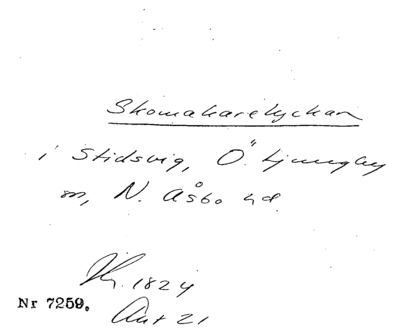 Skomakarelyckan
i Stidsvig, Ö. Ljungby
sn, N. Åsbo hd.
1824
Nr 7259.
Ant 21